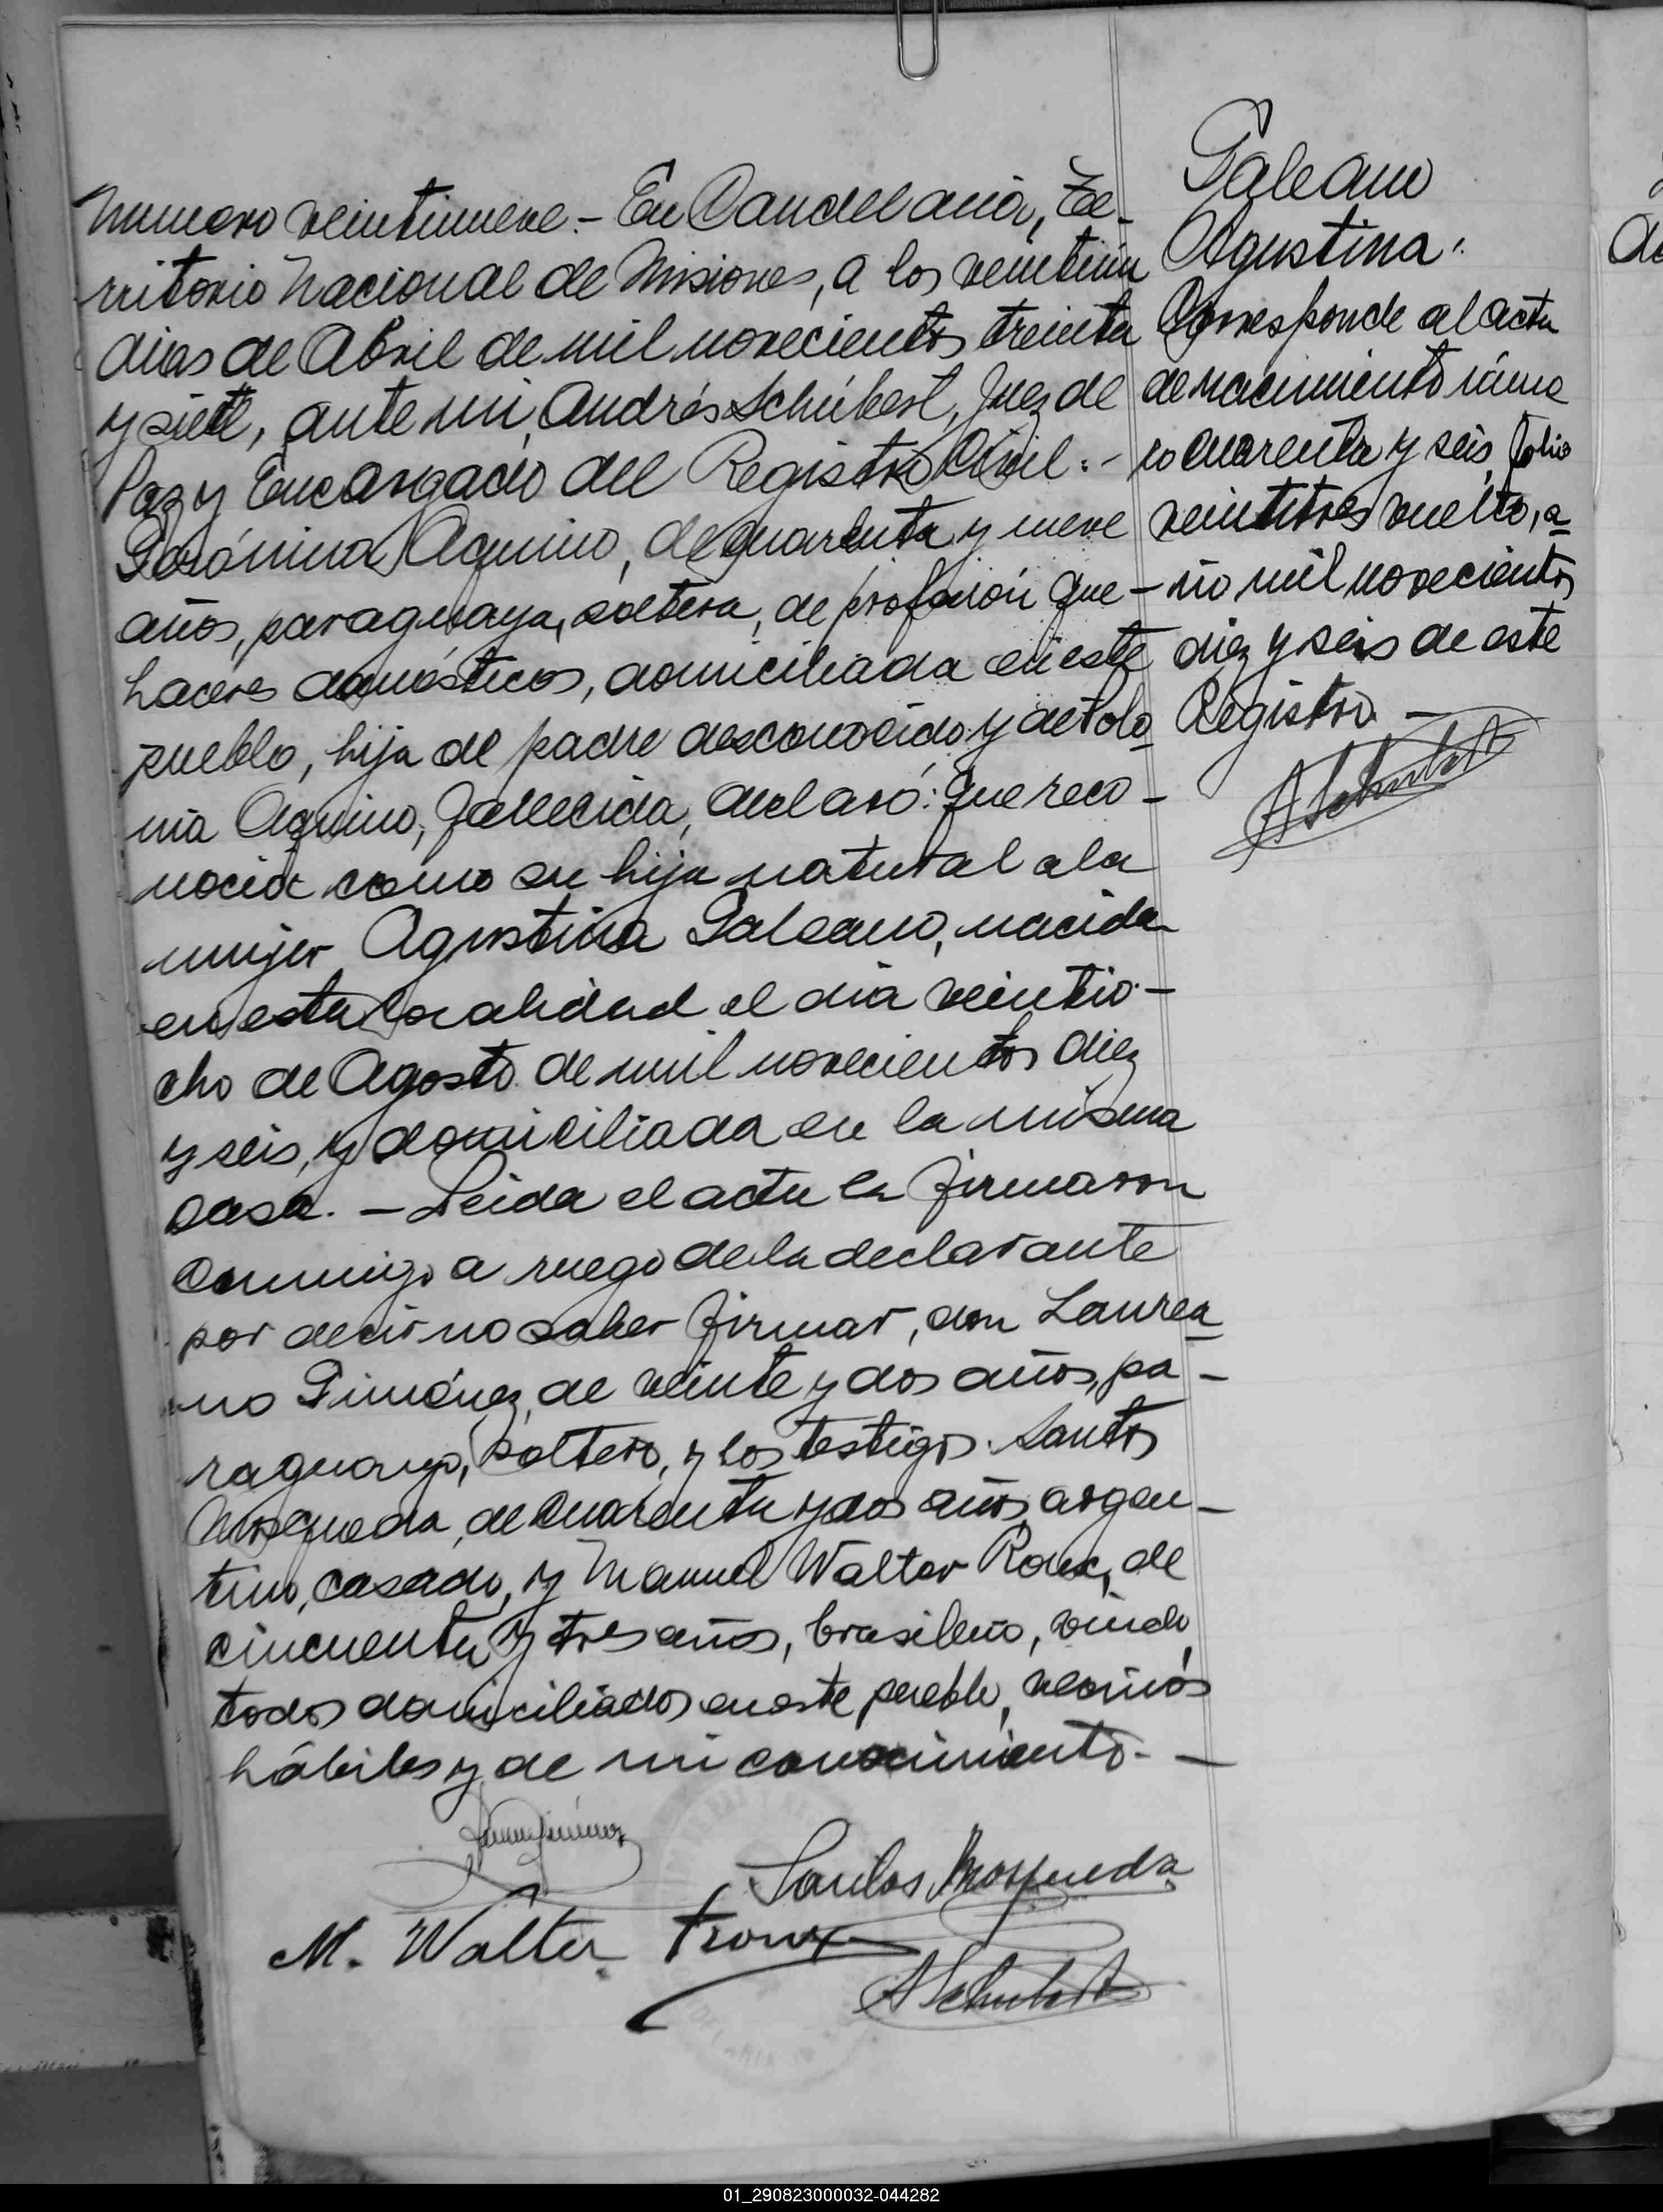 Numero veintinueve.- En Candelaria, Te-
rritorio Nacional de Misiones, a los veintiun
dias de Abril de mil novecientos treinta
y siete, ante mi, Andrés Schubert, Juez de
Paz y Encargado del Registro Civil:-
Gerónima Aquino, de cuarenta y nueve
años, paraguaya, soltera, de profesión que-
haceres domésticos, domiciliada en este
pueblo, hija de padre desconocido y de Polo
nia Aquino, fallecida, declaró: Que reco-
nocia como su hija natural a la
mujer Agustina Galeano, nacida
en esta localidad el dia veintio-
cho de Agosto de mil novecientos diez
y seis, y domiciliada en la misma
casa. - Leida el acta la firmaron
conmigo a ruego de la declarante
por decir no saber firmar, don Laurea
no Giménez, de veinte y dos años, pa-
raguayo, soltero, y los testigos: Santos
Mosqueda, de cuarenta y dos años, argen-
tino, casado, y Manuel Walter Roux, de
cincuenta y tres años, brasileño, viudo,
todos domiciliados en este pueblo, vecinos
hábiles y de mi conocimiento. -
Santos Mosqueda
M. Walter Troux
ASchubert
Galeano
Agustina:
Corresponde al acta
de nacimiento núme
ro cuarenta y seis, folio
veintitres vuelto, a
ño mil novecientos
diez y seis de este
Registro. -
ASchubert
01_290823000032-044282